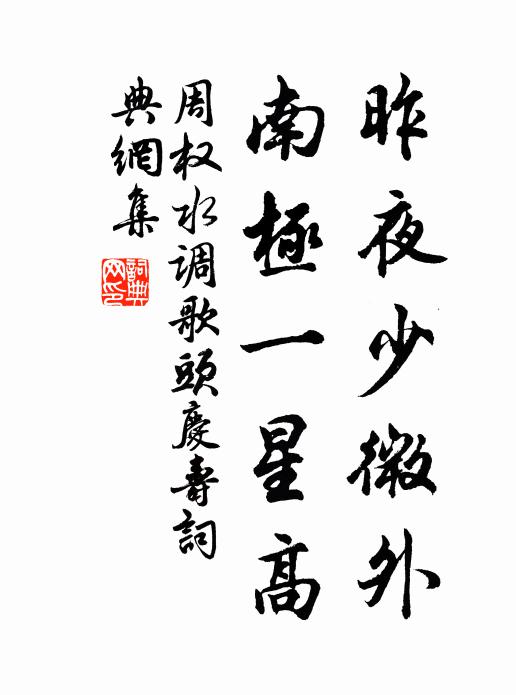 昨夜少微外
南極一星高
周权水调歌頭慶壽詞
典網集
詞典
网印